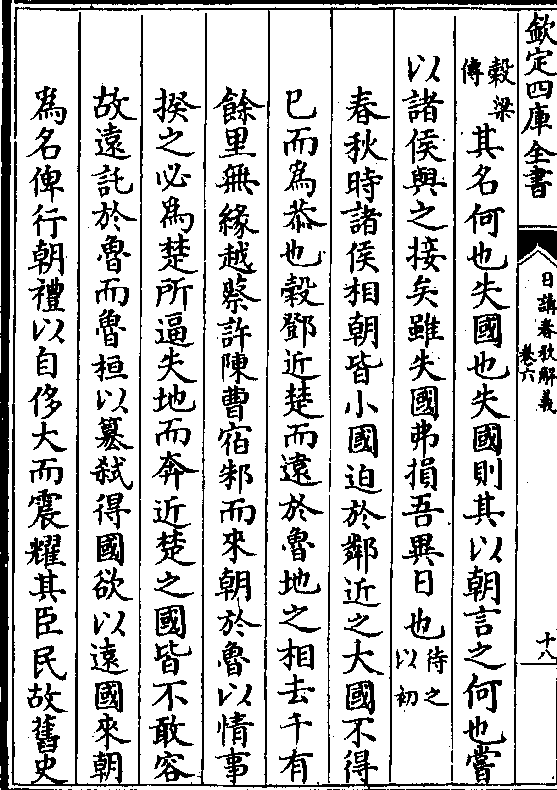 欽定四庫全書
日講春秋解義
卷六
十八
穀梁
傳
其名何也失國也失國則其以朝言之何也嘗
以諸侯與之接矣雖失國弗損吾異日也
待之
以初
春秋時諸侯相朝皆小國迫於鄰近之大國不得
已而為恭也穀鄧近楚而遠於魯地之相去千有
餘里無緣越蔡許陳曹宿邾而來朝於魯以情事
揆之必為楚所逼失地而奔近楚之國皆不敢容
故遠託於魯而魯桓以篡弒得國欲以遠國來朝
為名俾行朝禮以自侈大而震耀其臣民故舊史